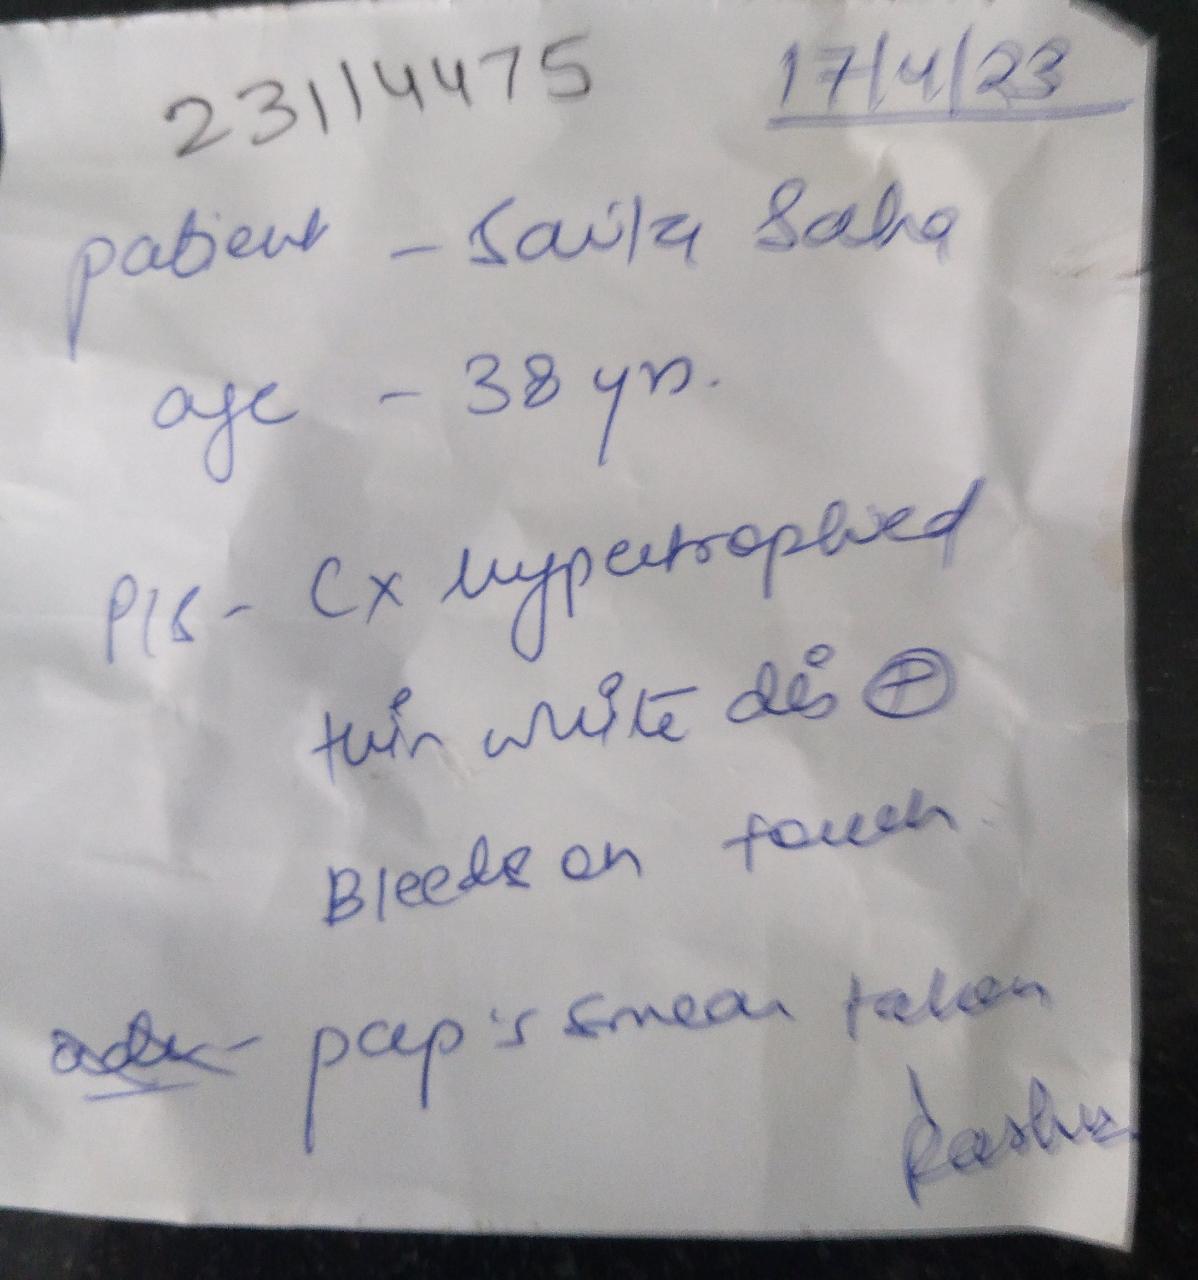 23114475
17/4/23
patient - Saila Saha
age - 38 yrs.
P/S - Cx hypertrophied
thin white dis ⊕
Bleeds on touch.
adv - pap's smear taken